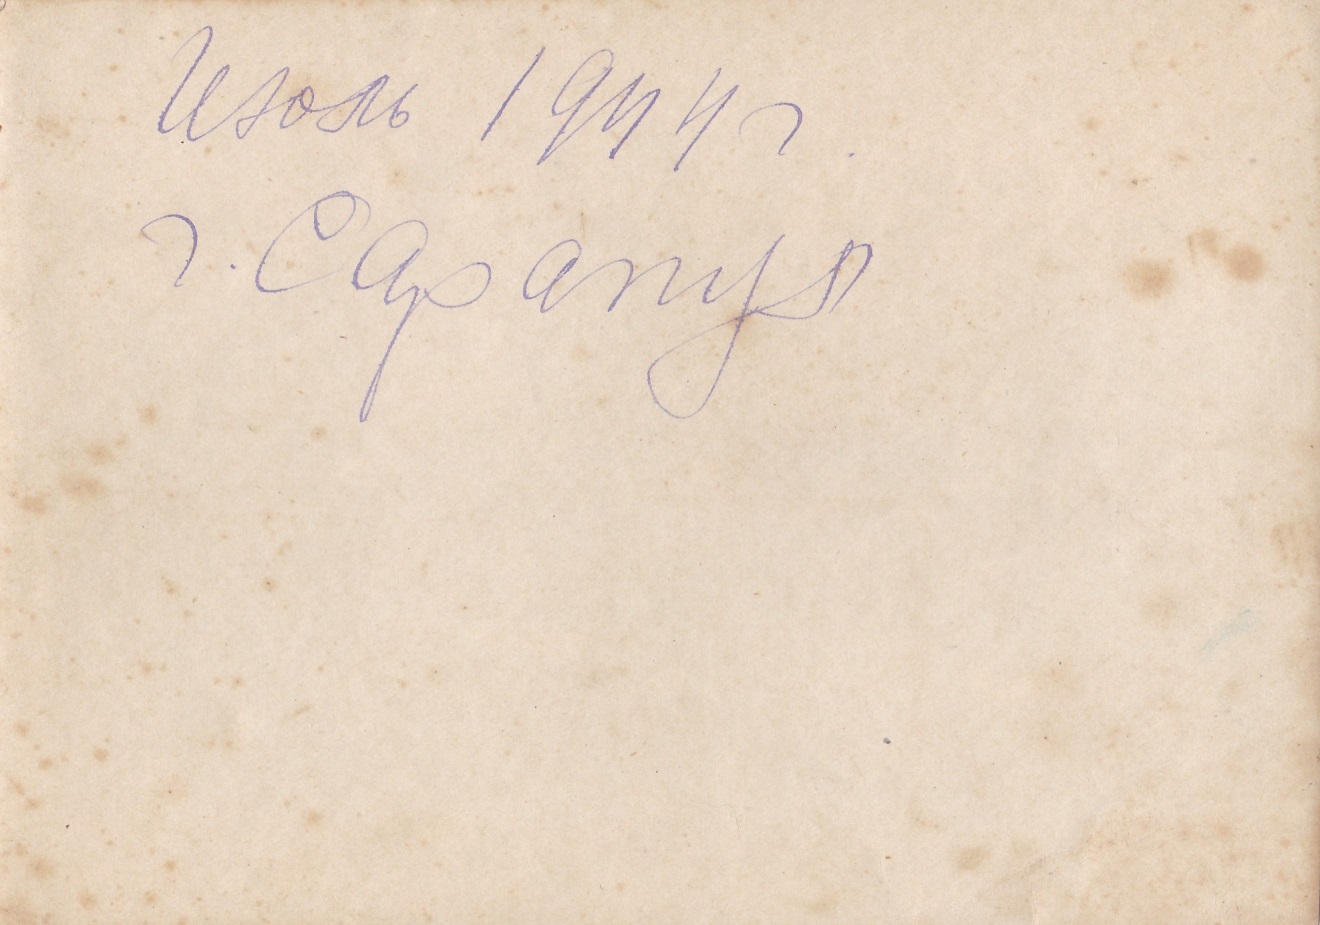 Июль 1944 г.
г. Сарапул